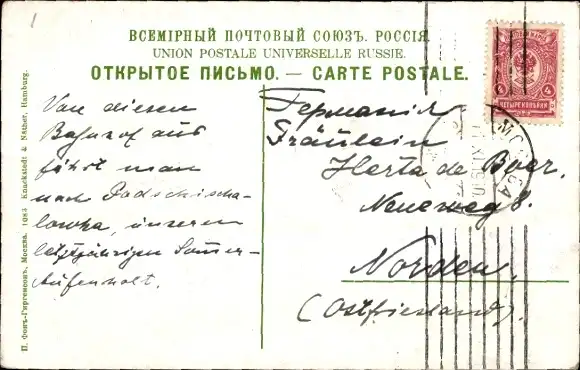 1
ВСЕМІРНЫЙ ПОЧТОВЫЙ СОЮЗЪ. РОССІЯ.
UNION POSTALE UNIVERSELLE RUSSIE.
ОТКРЫТОЕ ПИСЬМО. — CARTE POSTALE.
Von diesem
Bahnhof aus
fährt man
nach Podschischa-
lowka, unseren
letztjährigen Sommer-
Aufenthalt.
Германія
Fräulein
Herta de Boer.
Neueweg 8.
Norden.
(Ostfriesland).
4 4
ЧЕТЫРЕ КОПѢЙКИ
МОСКВА
П. Фонъ-Гиргенсонъ, Москва. 1083 Knackstedt & Näther, Hamburg.